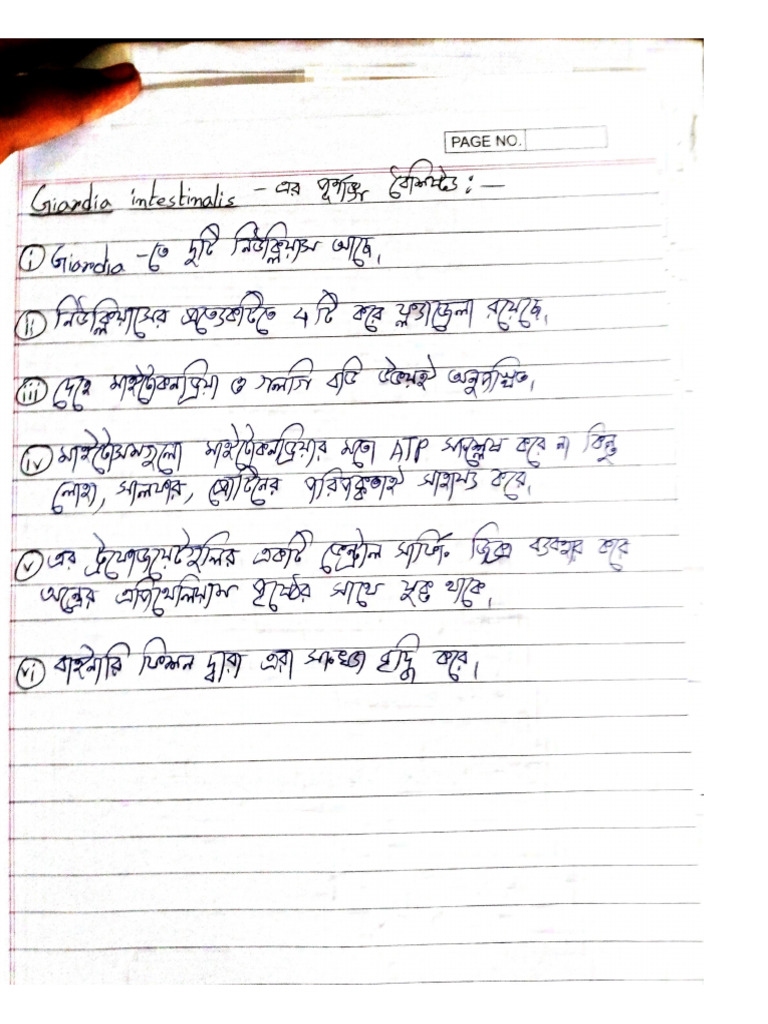 PAGE NO.
Giardia intestinalis - এর পূর্ণাঙ্গ বৈশিষ্ট্য :—
(i) Giardia -তে দুটি নিউক্লিয়াস আছে।
(ii) নিউক্লিয়াসের প্রত্যেকটিতে 4 টি করে ফ্লাজেলা রয়েছে।
(iii) দেহে মাইটোকনড্রিয়া ও গলগি বডি উভয়ই অনুপস্থিত।
(iv) মাইটোসমগুলো মাইটোকনড্রিয়ার মতো ATP সংশ্লেষ করে না কিন্তু
লোহা, সালফার, প্রোটিনের পরিপক্কতাই সাহায্য করে।
(v) এর ট্রফোজয়েটগুলির একটি ভেন্ট্রাল সাকিং ডিস্ক ব্যবহার করে
অন্ত্রের এপিথেলিয়াম পৃষ্ঠের সাথে যুক্ত থাকে।
(vi) বাইনারি ফিশন দ্বারা এরা সংখ্যা বৃদ্ধি করে।